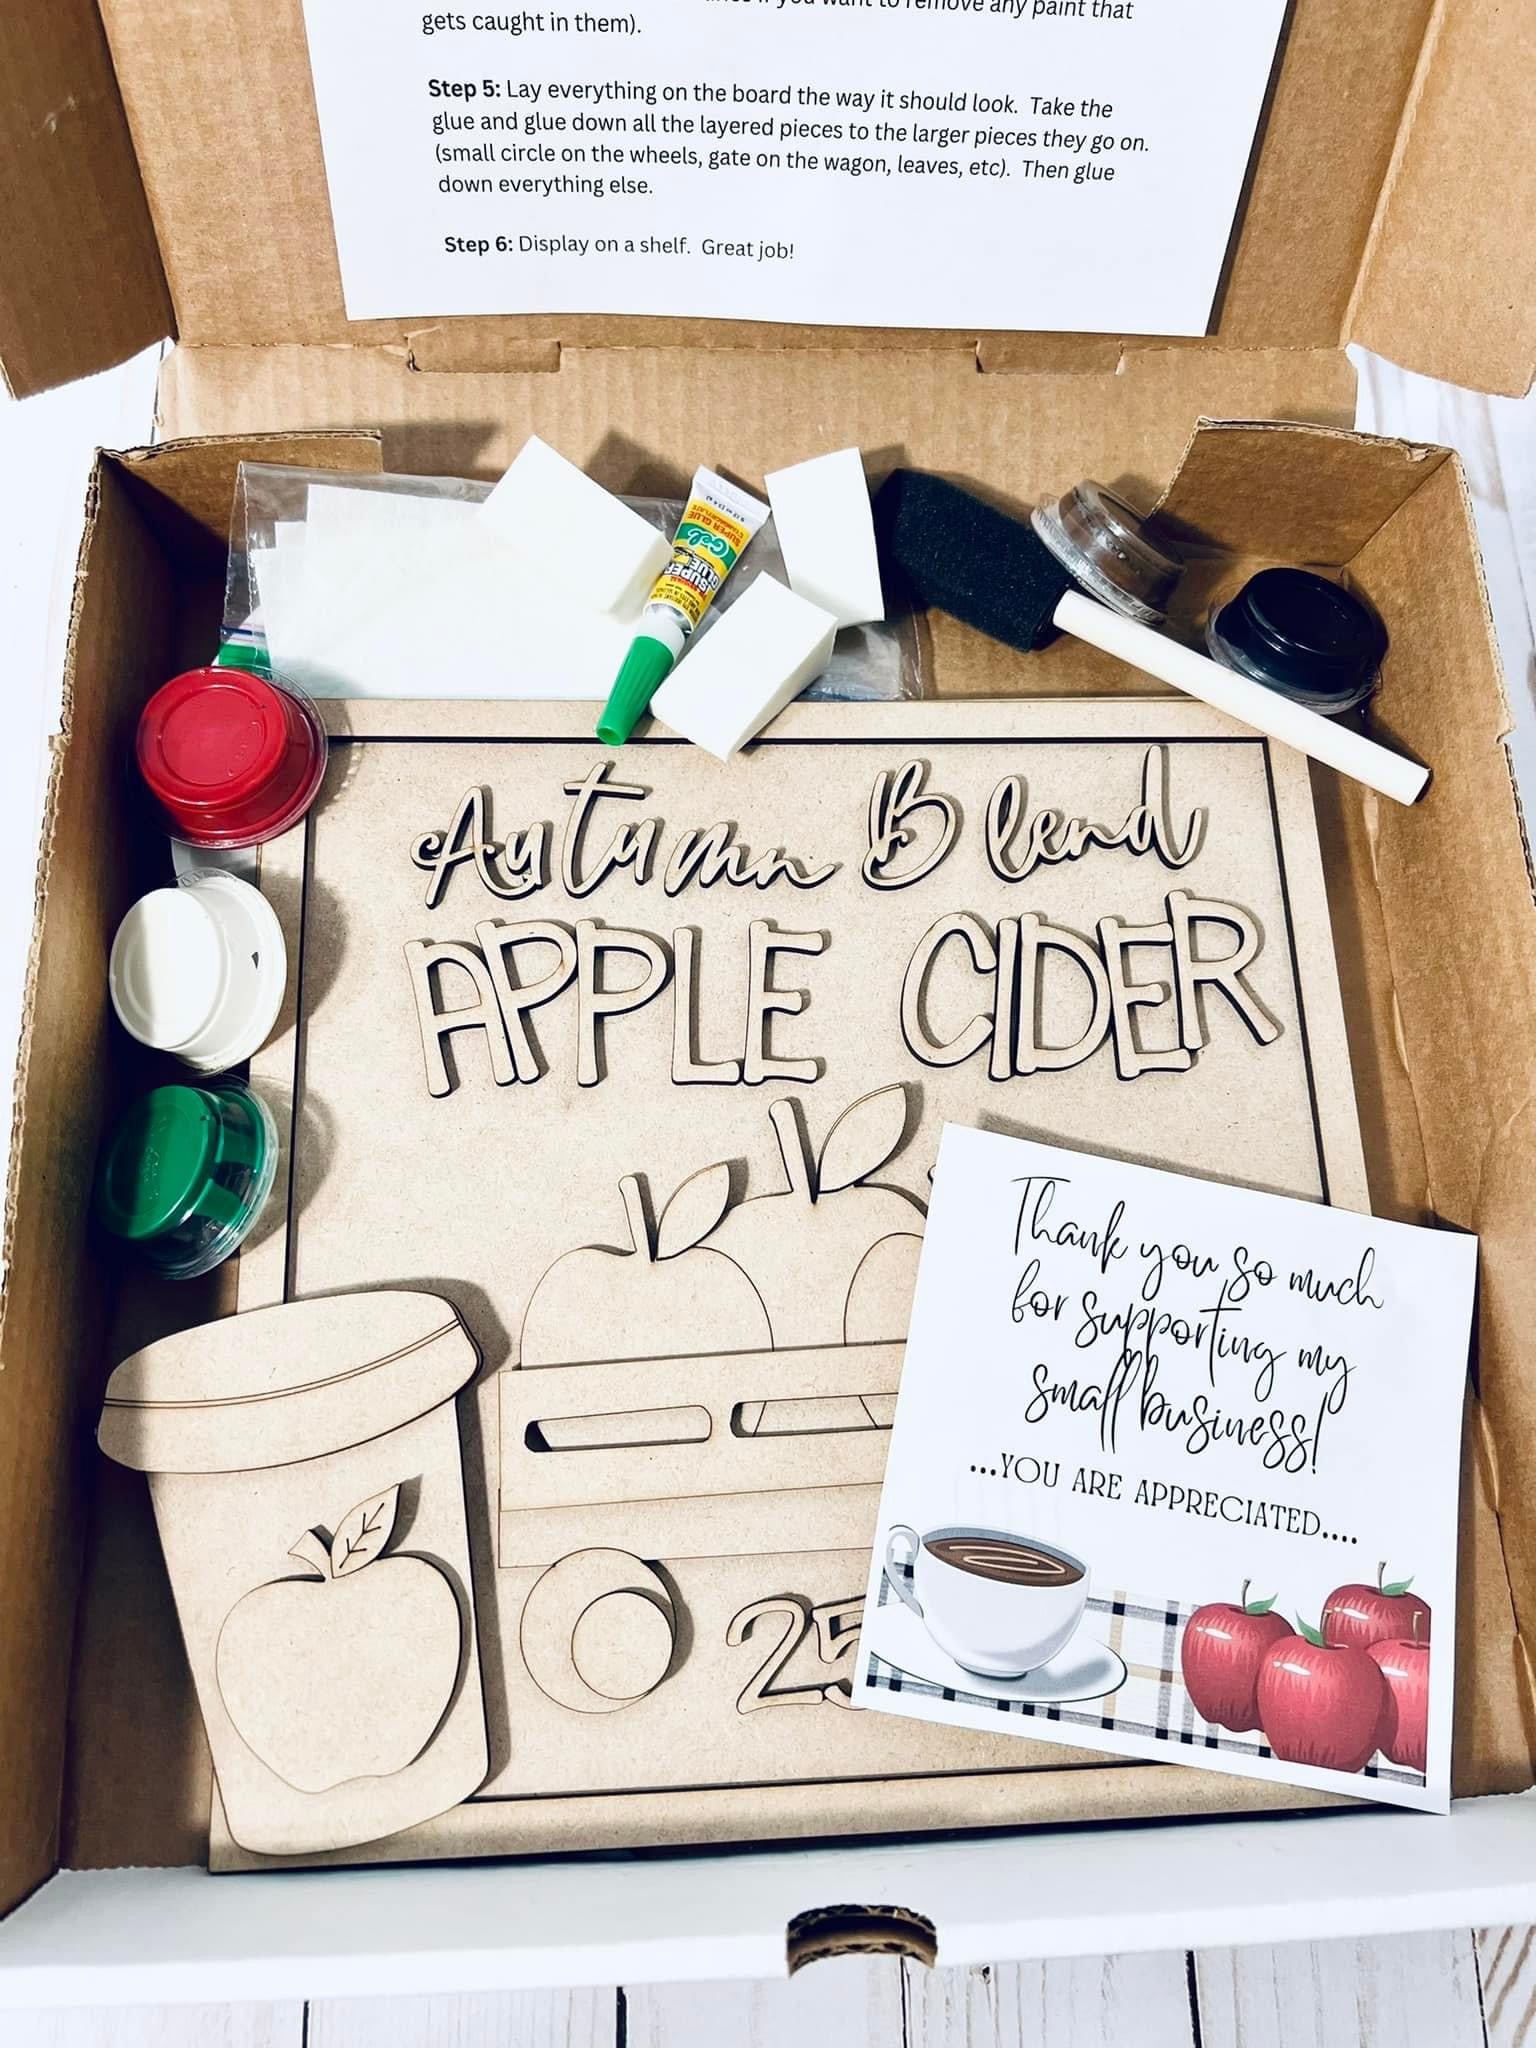 if you want to remove any paint that
gets caught in them).
Step 5: Lay everything on the board the way it should look. Take the
glue and glue down all the layered pieces to the larger pieces they go on.
(small circle on the wheels, gate on the wagon, leaves, etc). Then glue
down everything else.
Step 6: Display on a shelf. Great job!
SUPER GLUE
Gel
SUPER
GLUE
Autumn Blend
APPLE CIDER
25
Thank you so much
for supporting my
small business!
...YOU ARE APPRECIATED....